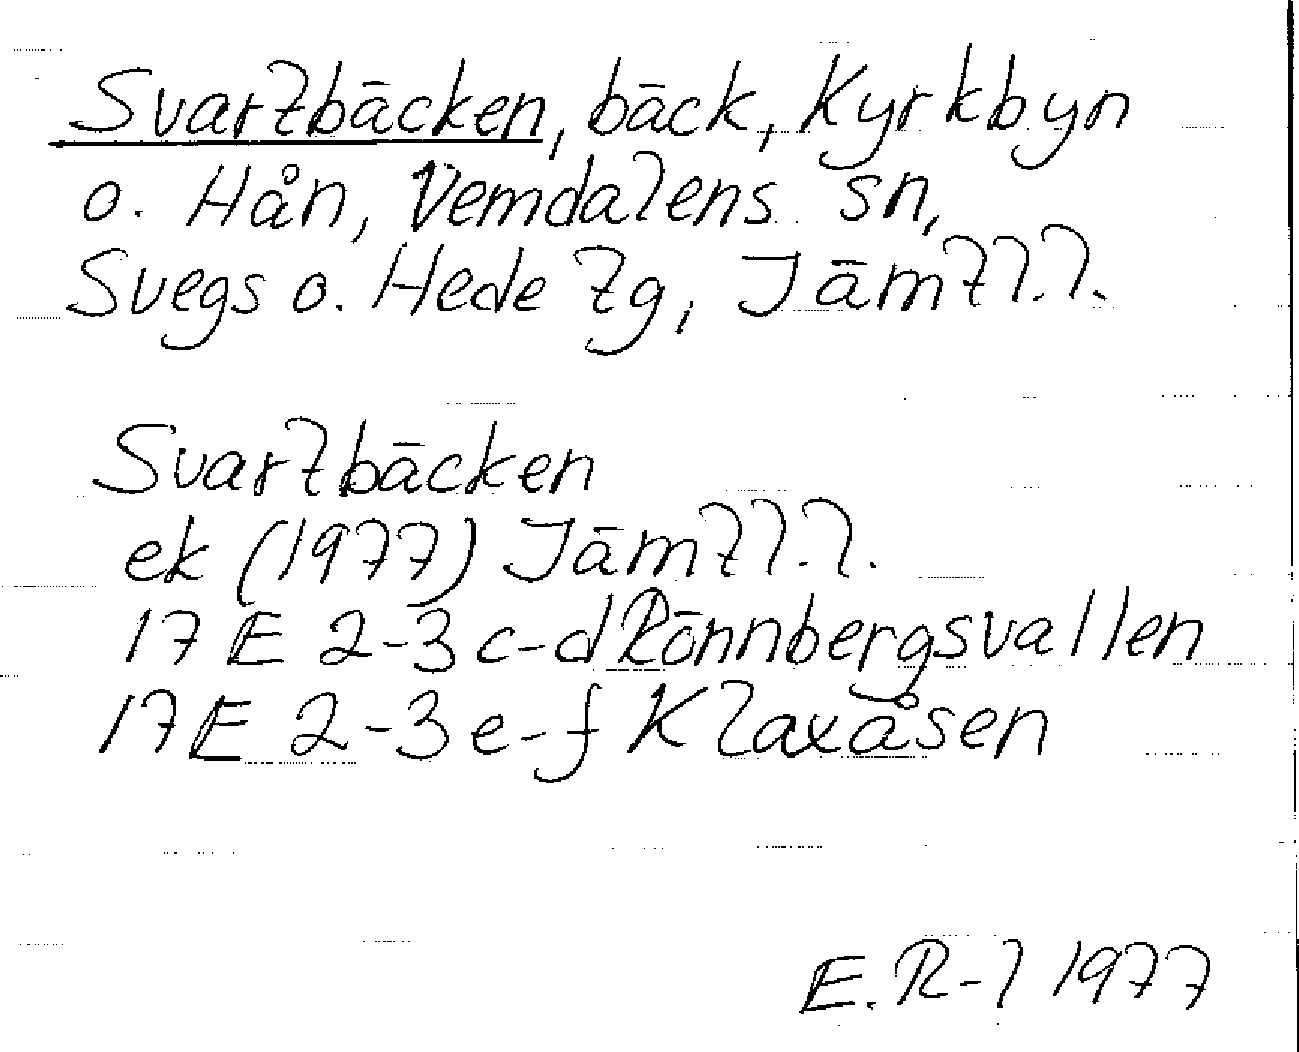 Svartbäcken, bäck, Kyrkbyn
o. Hån, Vemdalens sn,
Svegs o. Hede tg, Jämtl.l.
Svartbäcken
ek (1977) Jämtl.l.
17 E 2-3 c-d Rönnbergsvallen
17 E 2-3 e-f Klaxåsen
E. R-l 1977